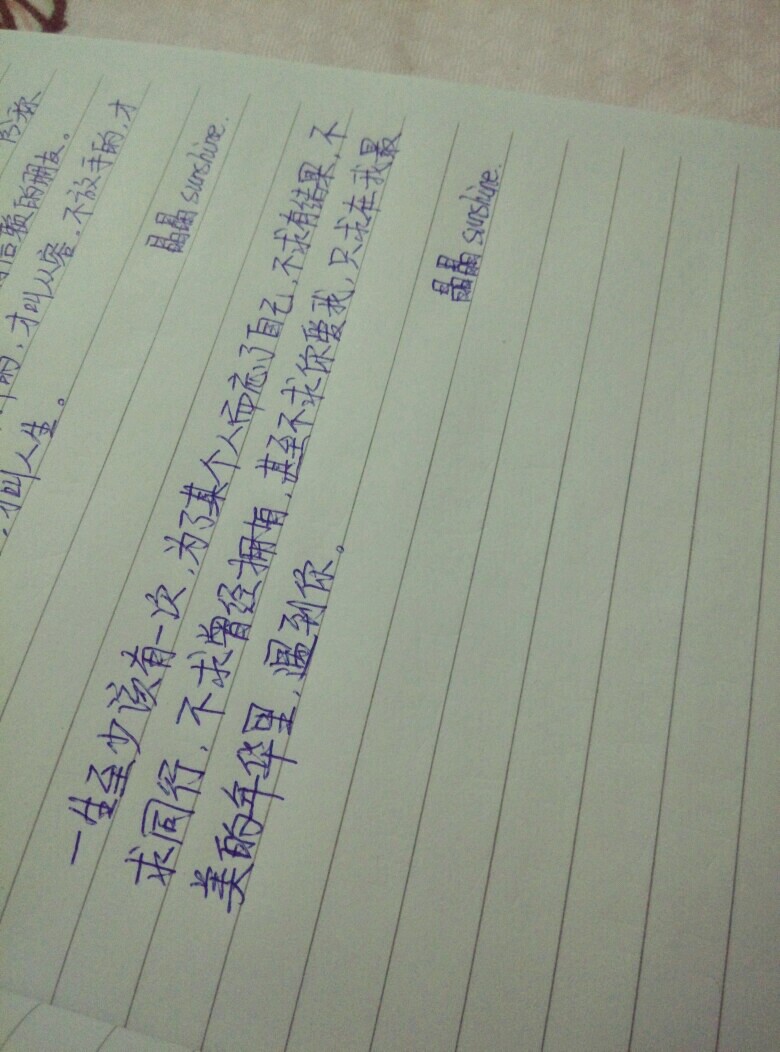 称
信赖的朋友。
的，才叫从容。不放手的，才
，才叫人生。
晶晶 sunshine.
一生至少该有一次，为了某个人而忘了自己，不求有结果，不
求同行，不求曾经拥有，甚至不求你爱我，只求在我最
美的年华里，遇到你。
晶晶 sunshine.